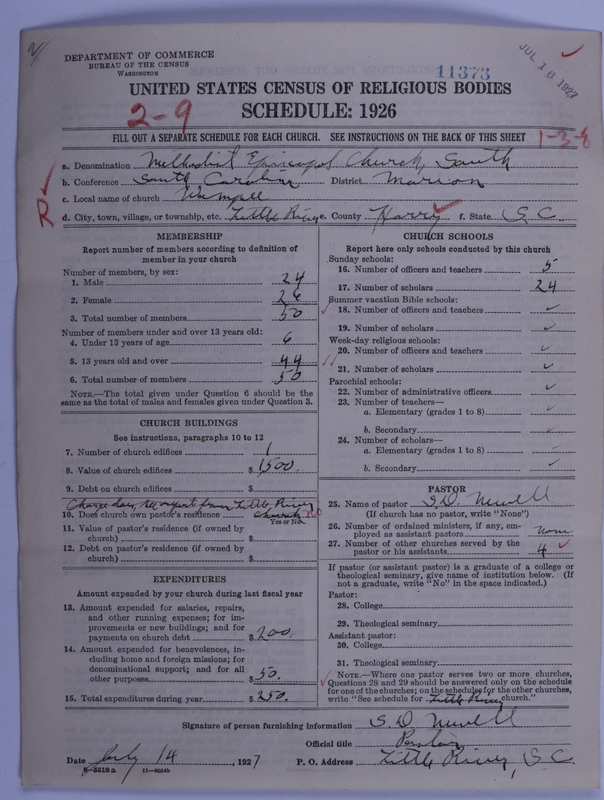 DEPARTMENT OF COMMERCE
BUREAU OF THE CENSUS
WASHINGTON
11373
JUL 18 1927
UNITED STATES CENSUS OF RELIGIOUS BODIES
2-9
SCHEDULE: 1926
FILL OUT A SEPARATE SCHEDULE FOR EACH CHURCH. SEE INSTRUCTIONS ON THE BACK OF THIS SHEET
1-3-8
a. Denomination Methodist Episcopal Church, South
b. Conference South Carolina District Marion
c. Local name of church
R
d. City, town, village, or township, etc. Little River e. County Horry f. State S.C.
MEMBERSHIP
Report number of members according to definition of member in your church
Number of members, by sex:
1. Male 24
2. Female 26
3. Total number of members 50
Number of members under and over 13 years old:
4. Under 13 years of age 6
5. 13 years old and over 44
6. Total number of members 50
NOTE.—The total given under Question 6 should be the same as the total of males and females given under Question 3.
CHURCH BUILDINGS
See instructions, paragraphs 10 to 12
7. Number of church edifices 1
8. Value of church edifices $ 1500.
9. Debt on church edifices $
Charge does, see report from Little River
10. Does church own pastor's residence church No
Yes or No
11. Value of pastor's residence (if owned by church) $
12. Debt on pastor's residence (if owned by church) $
EXPENDITURES
Amount expended by your church during last fiscal year
13. Amount expended for salaries, repairs, and other running expenses; for improvements or new buildings; and for payments on church debt $ 200.
14. Amount expended for benevolences, including home and foreign missions; for denominational support; and for all other purposes $ 50.
15. Total expenditures during year $ 250.
CHURCH SCHOOLS
Report here only schools conducted by this church
Sunday schools:
16. Number of officers and teachers 5
17. Number of scholars 24
Summer vacation Bible schools:
18. Number of officers and teachers
19. Number of scholars
Week-day religious schools:
20. Number of officers and teachers
21. Number of scholars
Parochial schools:
22. Number of administrative officers
23. Number of teachers—
a. Elementary (grades 1 to 8)
b. Secondary
24. Number of scholars—
a. Elementary (grades 1 to 8)
b. Secondary
PASTOR
25. Name of pastor S. D. Newell
(If church has no pastor, write "None")
26. Number of ordained ministers, if any, employed as assistant pastors none
27. Number of other churches served by the pastor or his assistants 4
If pastor (or assistant pastor) is a graduate of a college or theological seminary, give name of institution below. (If not a graduate, write "No" in the space indicated.)
Pastor:
28. College
29. Theological seminary
Assistant pastor:
30. College
31. Theological seminary
NOTE.—Where one pastor serves two or more churches, Questions 28 and 29 should be answered only on the schedule for one of the churches; on the schedules for the other churches, write "See schedule for Little River church."
Signature of person furnishing information S. D. Newell
Official title
Date July 14, 1927 P. O. Address Little River, S.C.
8-5518a 11-9034b